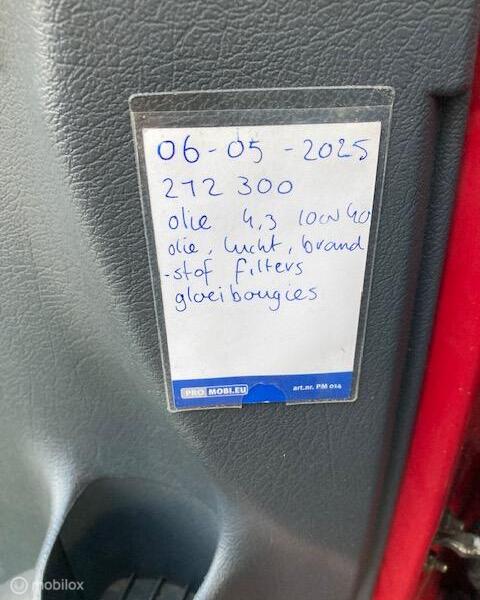 06-05-2025
212 300
olie 4,3 10W40
olie, lucht, brand
-stof filters
gloeibougies
PROMOBI.EU
art.nr. PM 014
mobilox